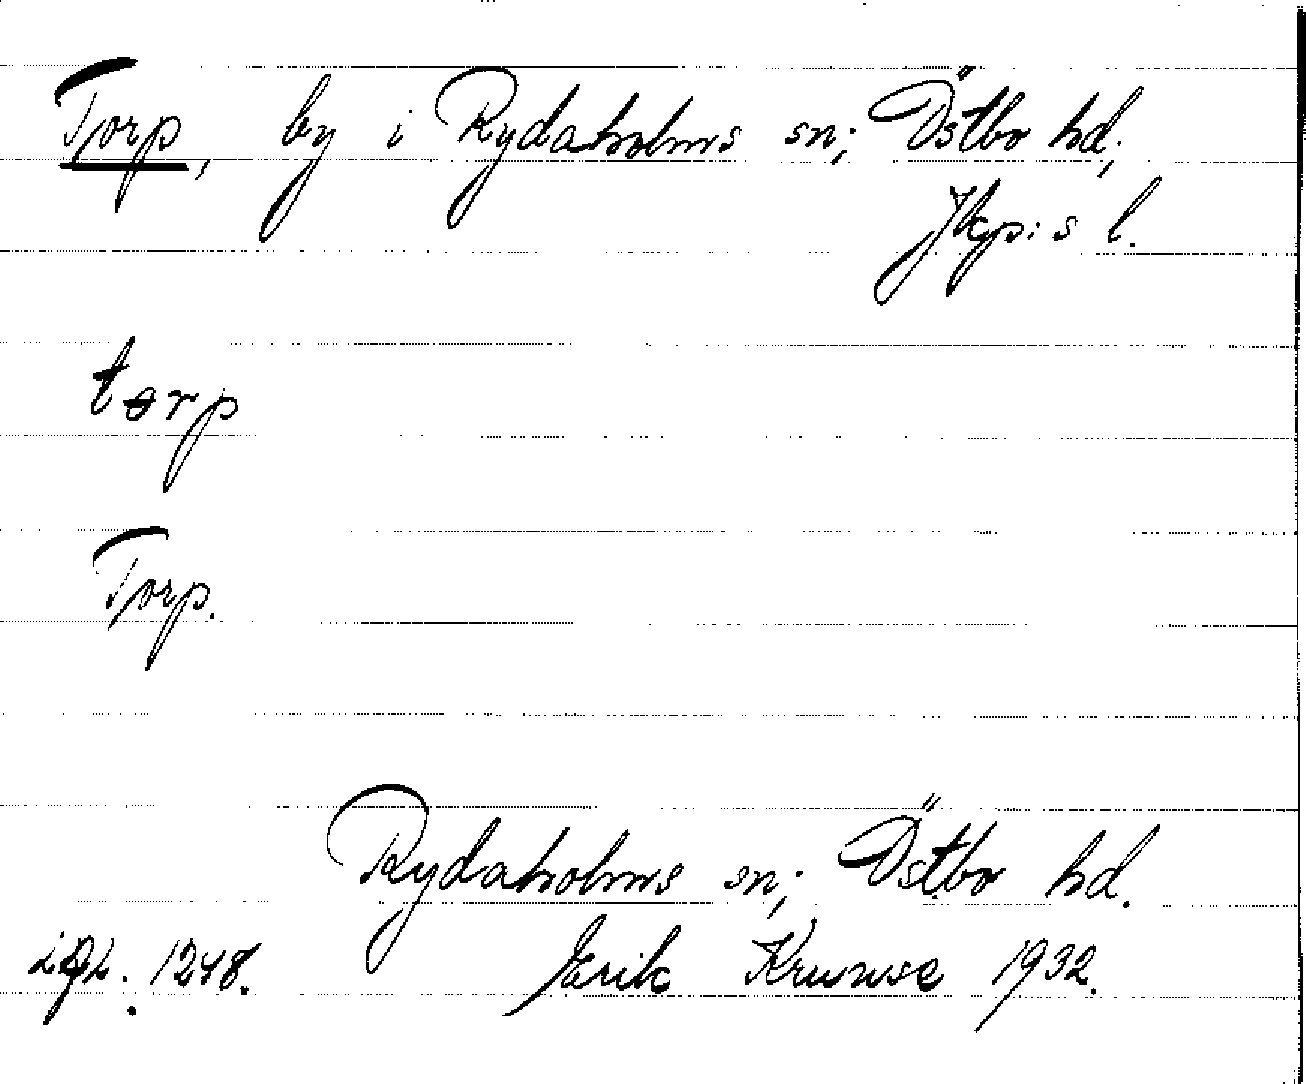 Torp, by i Rydaholms sn; Östbo hd;
Jkp:s l.
torp
Torp.
Rydaholms sn; Östbo hd.
1248. Erik Kruuse 1932.